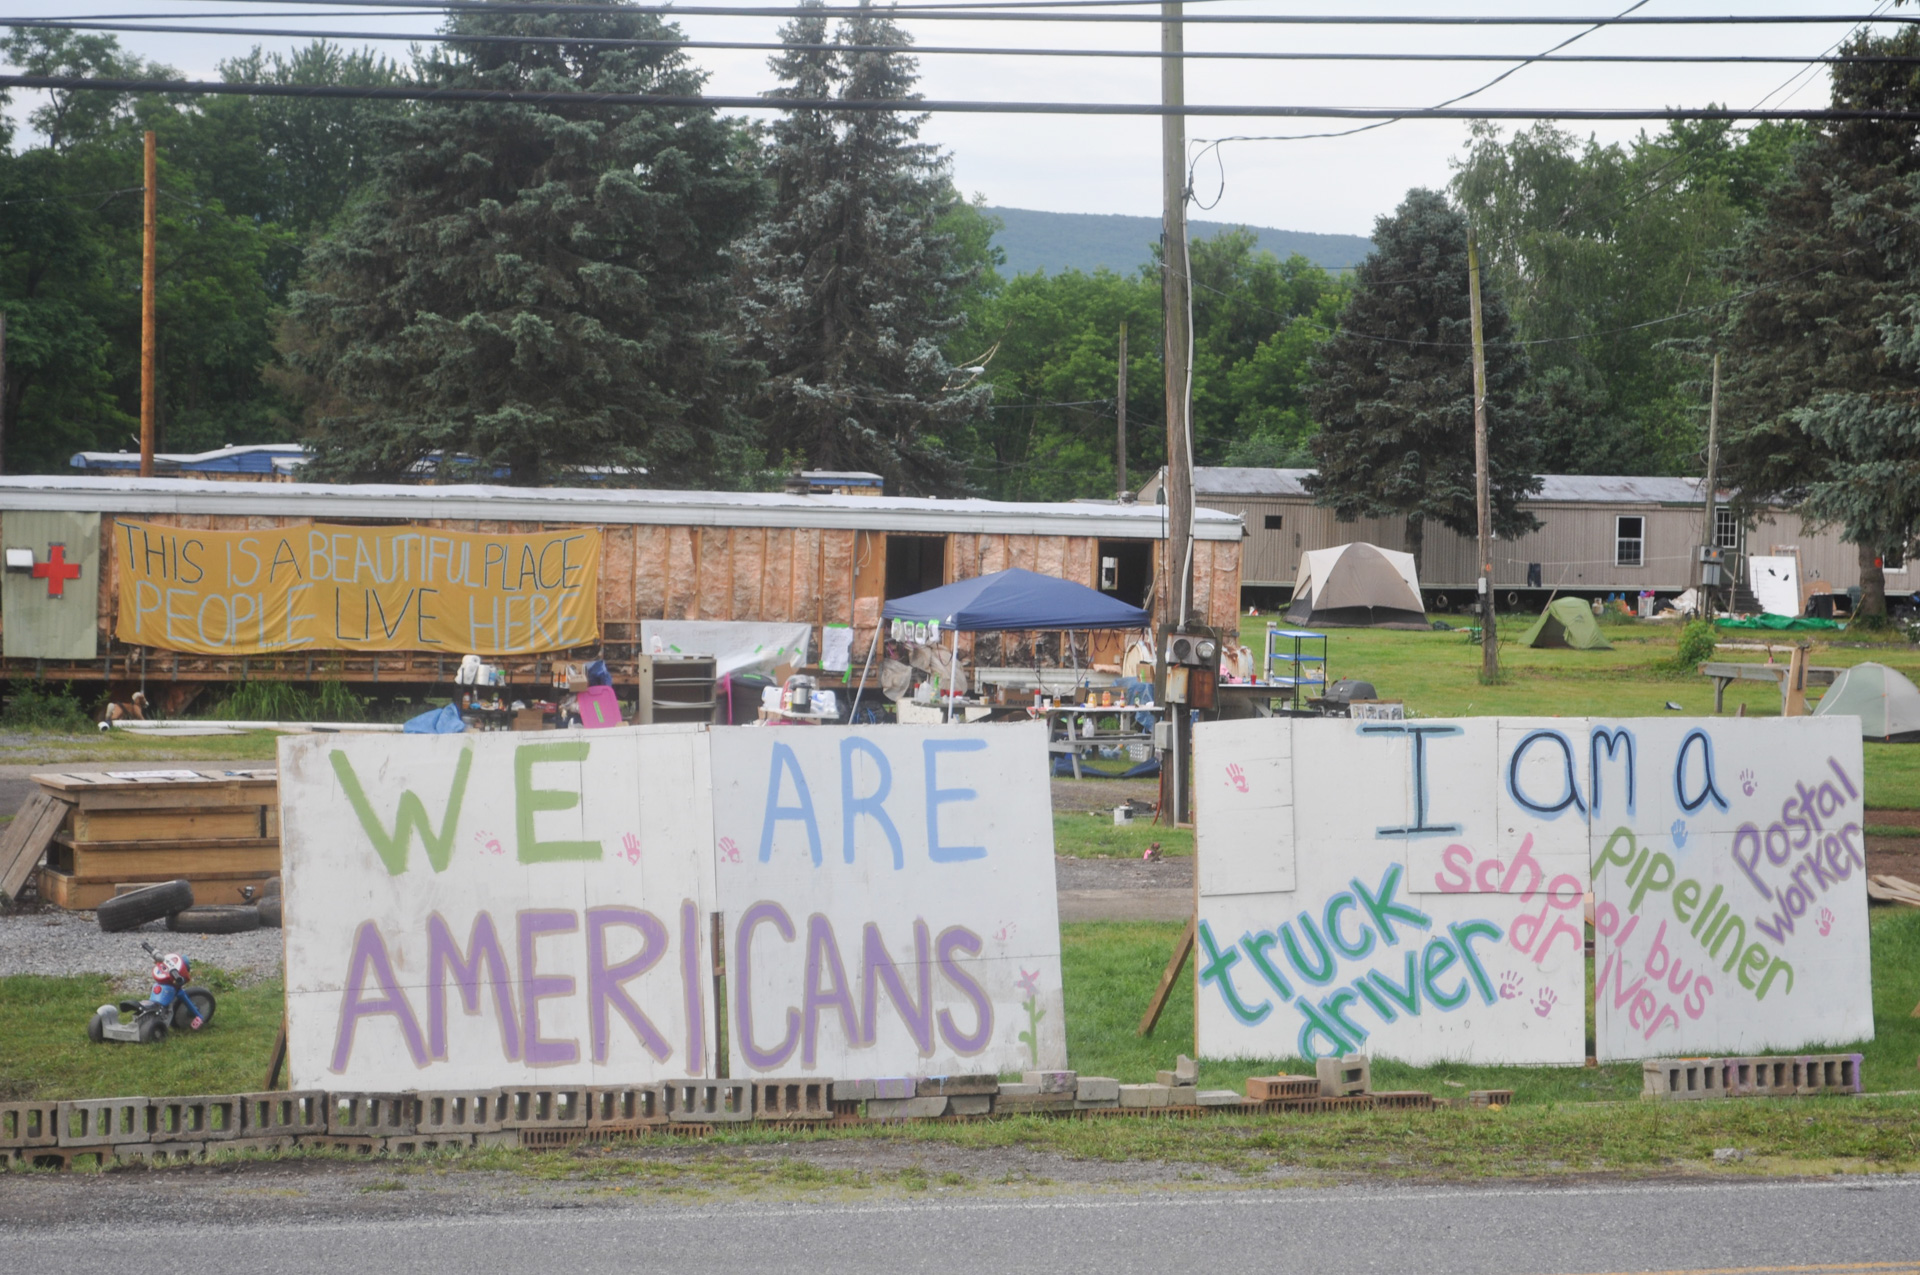 THIS IS A BEAUTIFUL PLACE
PEOPLE LIVE HERE
WE ARE
AMERICANS
I am a
truck
driver
school bus
driver
pipeliner
Postal
worker